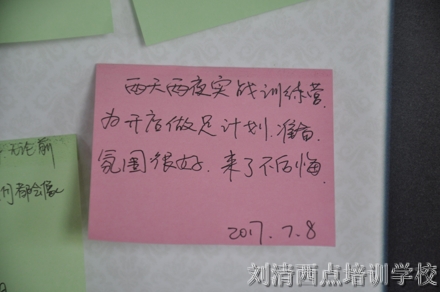 两天两夜实战训练营.
为开店做足计划.准备.
氛围很好.来了不后悔.
2017.7.8
无论前
刘清西点培训学校